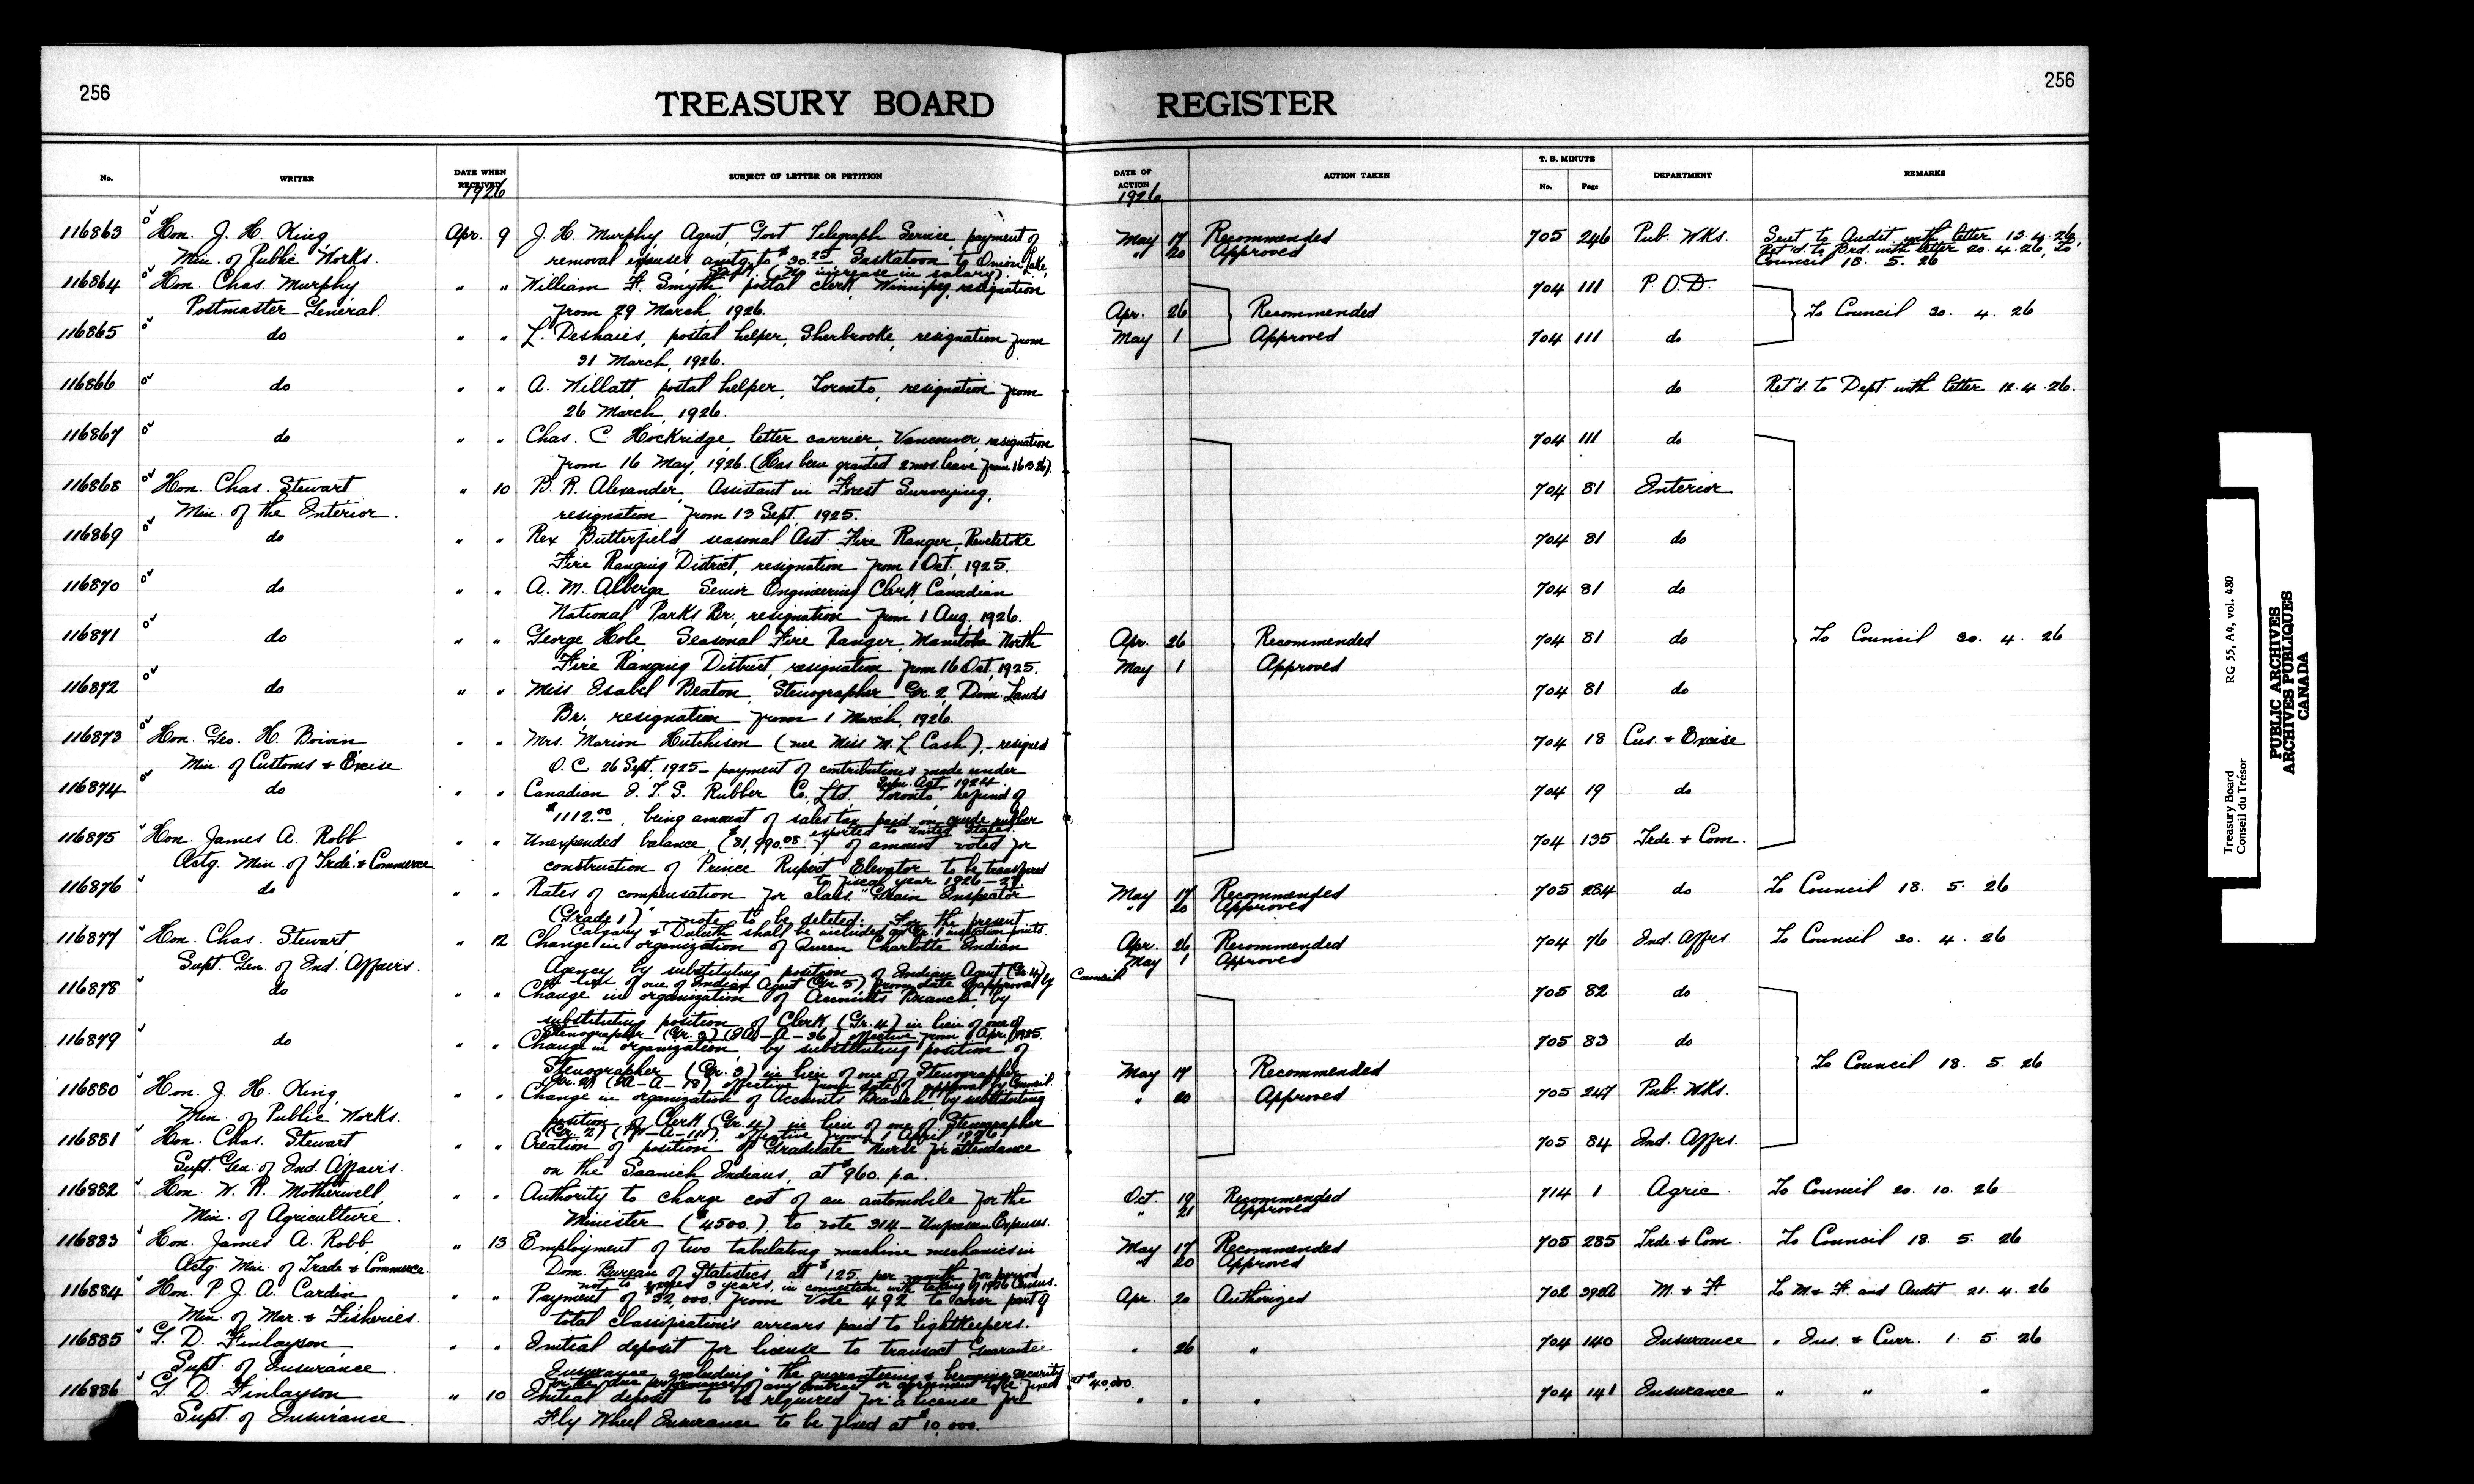 256
TREASURY BOARD REGISTER
256
No. WRITER DATE WHEN RECEIVED SUBJECT OF LETTER OR PETITION DATE OF ACTION ACTION TAKEN T. B. MINUTE No. Page DEPARTMENT REMARKS
1926 1926
116863 Hon. J. H. King Apr. 9 J. H. Murphy, Agent, Govt Telegraph Service, payment of May 17 Recommended 705 246 Pub. Wks. Sent to Audit with letter 13.4.26,
Min. of Public Works. removal expenses amtg. to $30.25 Saskatoon to Onion Lake, " 20 Approved Ret'd. to Brd. with letter 20.4.26, To
Sask. (No increase in salary). Council 18. 5. 26
116864 Hon. Chas. Murphy " " William F. Smyth, postal clerk, Winnipeg, resignation 704 111 P.O.D.
Postmaster General. from 29 March, 1926. Apr. 26 Recommended To Council 30. 4. 26
116865 do " " L. Deshaies, postal helper, Sherbrooke, resignation from May 1 Approved 704 111 do
31 March, 1926.
116866 do " " A. Willatt, postal helper, Toronto, resignation from do Ret'd. to Dept. with letter 12.4.26.
26 March, 1926.
116867 do " " Chas. C. Hockridge, letter carrier, Vancouver, resignation 704 111 do
from 16 May, 1926. (Has been granted 2 mos. leave from 16.3.26).
116868 Hon. Chas. Stewart " 10 B. R. Alexander, Assistant in Forest Surveying, 704 81 Interior
Min. of the Interior. resignation from 13 Sept. 1925.
116869 do " " Rex Butterfield seasonal Asst. Fire Ranger, Revelstoke 704 81 do
Fire Ranging District, resignation from 1 Oct., 1925.
116870 do " " A. M. Alberga Senior Engineering Clerk Canadian 704 81 do
National Parks Br., resignation from 1 Aug., 1926.
116871 do " " George Hole Seasonal Fire Ranger, Manitoba North Apr. 26 Recommended 704 81 do To Council 30. 4. 26
Fire Ranging District, resignation from 16 Oct., 1925. May 1 Approved
116872 do " " Miss Isabel Beaton, Stenographer Gr. 2, Dom. Lands 704 81 do
Br., resignation from 1 March, 1926.
116873 Hon. Geo. H. Boivin " " Mrs. Marion Hutchison (nee Miss M. L. Cash), - resigned 704 18 Cus. & Excise
Min. of Customs & Excise O.C. 26 Sept. 1925 - payment of contributions made under
Supn. Act 1924.
116874 do " " Canadian I. T. S. Rubber Co., Ltd., Toronto, refund of 704 19 do
$1112.00, being amount of sales tax paid on crude rubber
exported to United States.
116875 Hon. James A. Robb " " Unexpended balance, ($81,990.08) of amount voted for 704 135 Trde. & Com.
Actg. Min. of Trde. & Commerce construction of Prince Rupert Elevator to be transferred
to fiscal year 1926-27
116876 do " " Rates of compensation for class "Grain Inspector May 17 Recommended 705 284 do To Council 18. 5. 26
(Grade 1)" - note to be deleted: For the present " 20 Approved
Calgary & Duluth shall be included as Gr. 1 inspection points.
116877 Hon. Chas. Stewart " 12 Change in organization of Queen Charlotte Indian Apr. 26 Recommended 704 76 Ind. Affrs. To Council 30. 4. 26
Supt. Gen. of Ind. Affairs. Agency by substituting position of Indian Agent (Gr. 4) May 1 Approved
in lieu of one of Indian Agent (Gr. 5) from date of approval by Council
116878 do " " Change in organization of Accounts Branch, by 705 82 do
substituting position of Clerk (Gr. 4) in lieu of one of
Stenographer (Gr. 3) (IA-A-36) effective from 1 Apr. 1925.
116879 do " " Change in organization by substituting position of 705 83 do
Stenographer (Gr. 3) in lieu of one of Stenographer May 17 Recommended To Council 18. 5. 26
Gr. 2) (IA-A-78) effective from date of approval by Council.
116880 Hon. J. H. King, " " Change in organization of Accounts Branch, by substituting " 20 Approved 705 247 Pub. Wks.
Min. of Public Works. position of Clerk (Gr. 4) in lieu of one of Stenographer
(Gr. 2) (PW-A-111), effective from 1 April 1926
116881 Hon. Chas. Stewart " " Creation of position of Graduate Nurse for attendance 705 84 Ind. Affrs.
Supt. Gen. of Ind. Affairs. on the Saanich Indians, at $960. p.a.
116882 Hon. W. R. Motherwell, " " Authority to charge cost of an automobile for the Oct. 19 Recommended 714 1 Agric. To Council 20. 10. 26
Min. of Agriculture. Minister ($4500.), to vote 314 - Unforeseen Expenses. " 21 Approved
116883 Hon. James A. Robb, " 13 Employment of two tabulating machine mechanics in May 17 Recommended 705 285 Trde. & Com. To Council 18. 5. 26
Actg. Min. of Trade & Commerce. Dom. Bureau of Statistics at $125 per month for period " 20 Approved
not to exceed 3 years, in connection with taking of 1926 Census.
116884 Hon. P. J. A. Cardin " " Payment of $32,000. from Vote 492 to cover part of Apr. 20 Authorized 702 392 M. & F. To M. & F. and Audit 21. 4. 26
Min. of Mar. & Fisheries. total classification's arrears paid to lightkeepers.
116885 G. D. Finlayson, " " Initial deposit for license to transact Guarantee " 26 " 704 140 Insurance " Ins. & Curr. 1. 5. 26
Supt. of Insurance. Insurance including "the guaranteeing & becoming security
for the due performance of any contract or agreement" to be fixed at $40,000.
116886 G. D. Finlayson " 10 Initial deposit to be required for a license for " " " 704 141 Insurance " " "
Supt. of Insurance Fly Wheel Insurance to be fixed at $10,000.
Treasury Board RG 55, A4, vol. 480
Conseil du Trésor
PUBLIC ARCHIVES
ARCHIVES PUBLIQUES
CANADA